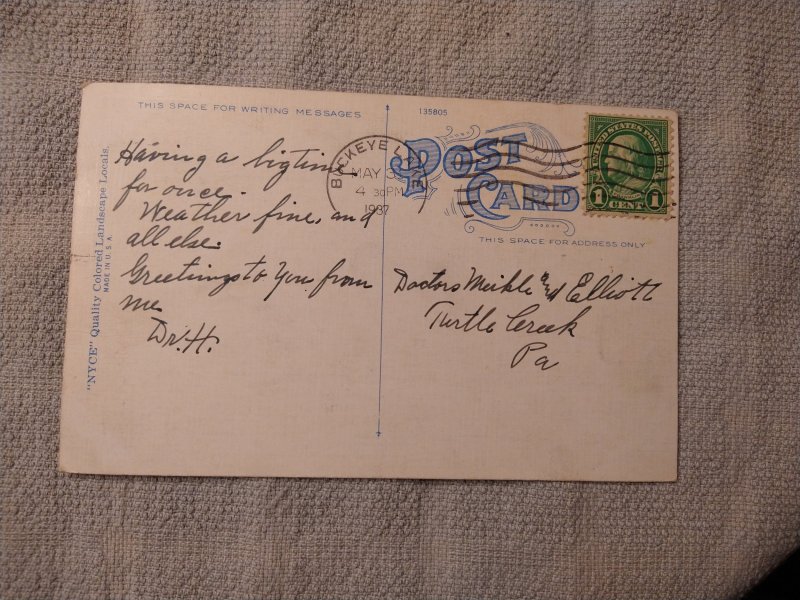 THIS SPACE FOR WRITING MESSAGES
135805
"NYCE" Quality Colored Landscape Locals.
MADE IN U.S.A.
Having a bigtime
for once.
Weather fine, and
all else.
Greetings to you from
me
Dr. H.
BUCKEYE LAKE
MAY 3
4 30 PM
1937
POST
CARD
UNITED STATES POSTAGE
1 CENT 1
THIS SPACE FOR ADDRESS ONLY
Doctors Meikle and Elliott
Turtle Creek
Pa